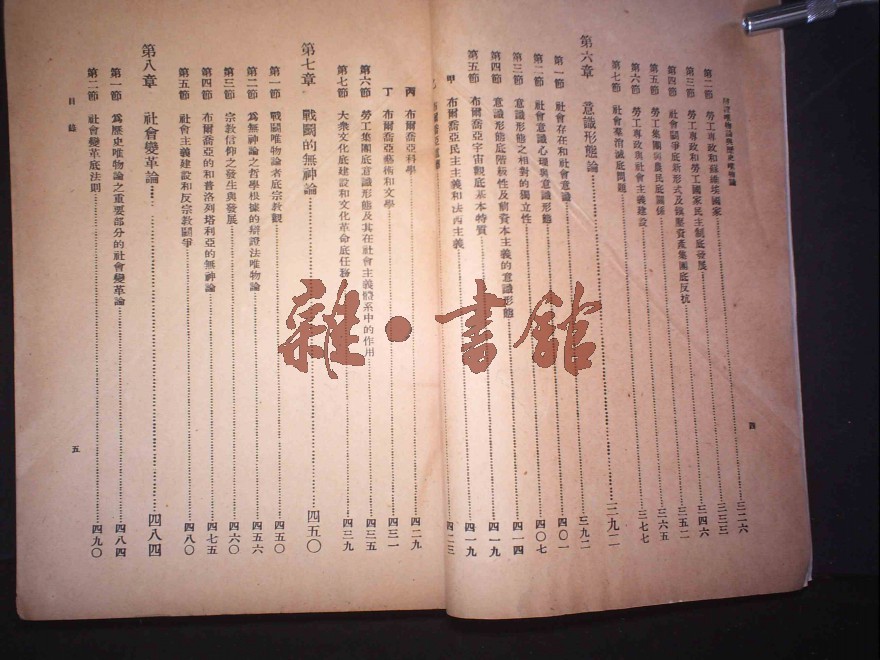 辯證唯物論與歷史唯物論
第二節 勞工專政和蘇維埃國家……三二六
第三節 勞工專政和勞工國家民主制底發展……三三三
第四節 社會鬭爭底新形式及鎮壓資產集團底反抗……三四六
第五節 勞工集團與農民底關係……三五二
第六節 勞工專政與社會主義建設……三六五
第七節 社會羣消滅底問題……三七七
第六章 意識形態論……三九二
第一節 社會存在和社會意識……三九二
第二節 社會意識心理與意識形態……四〇一
第三節 意識形態之相對的獨立性……四〇七
第四節 意識形態底階級性及前資本主義的意識形態……四一四
第五節 布爾喬亞宇宙觀底基本特質……四一九
甲 布爾喬亞民主主義和法西主義……四一九
四二三
四
丙 布爾喬亞科學……四二九
丁 布爾喬亞藝術和文學……四三一
第六節 勞工集團底意識形態及其在社會主義體系中的作用……四三五
第七節 大衆文化底建設和文化革命底任務……四三九
第七章 戰鬭的無神論……四五〇
第一節 戰鬭唯物論者底宗教觀……四五〇
第二節 爲無神論之哲學根據的辯證法唯物論……四五六
第三節 宗教信仰之發生與發展……四六〇
第四節 布爾喬亞的和普洛列塔利亞的無神論……四七五
第五節 社會主義建設和反宗教鬭爭……四八〇
第八章 社會變革論……四八四
第一節 爲歷史唯物論之重要部分的社會變革論……四八四
第二節 社會變革底法則……四九〇
目錄
五
雜·書館